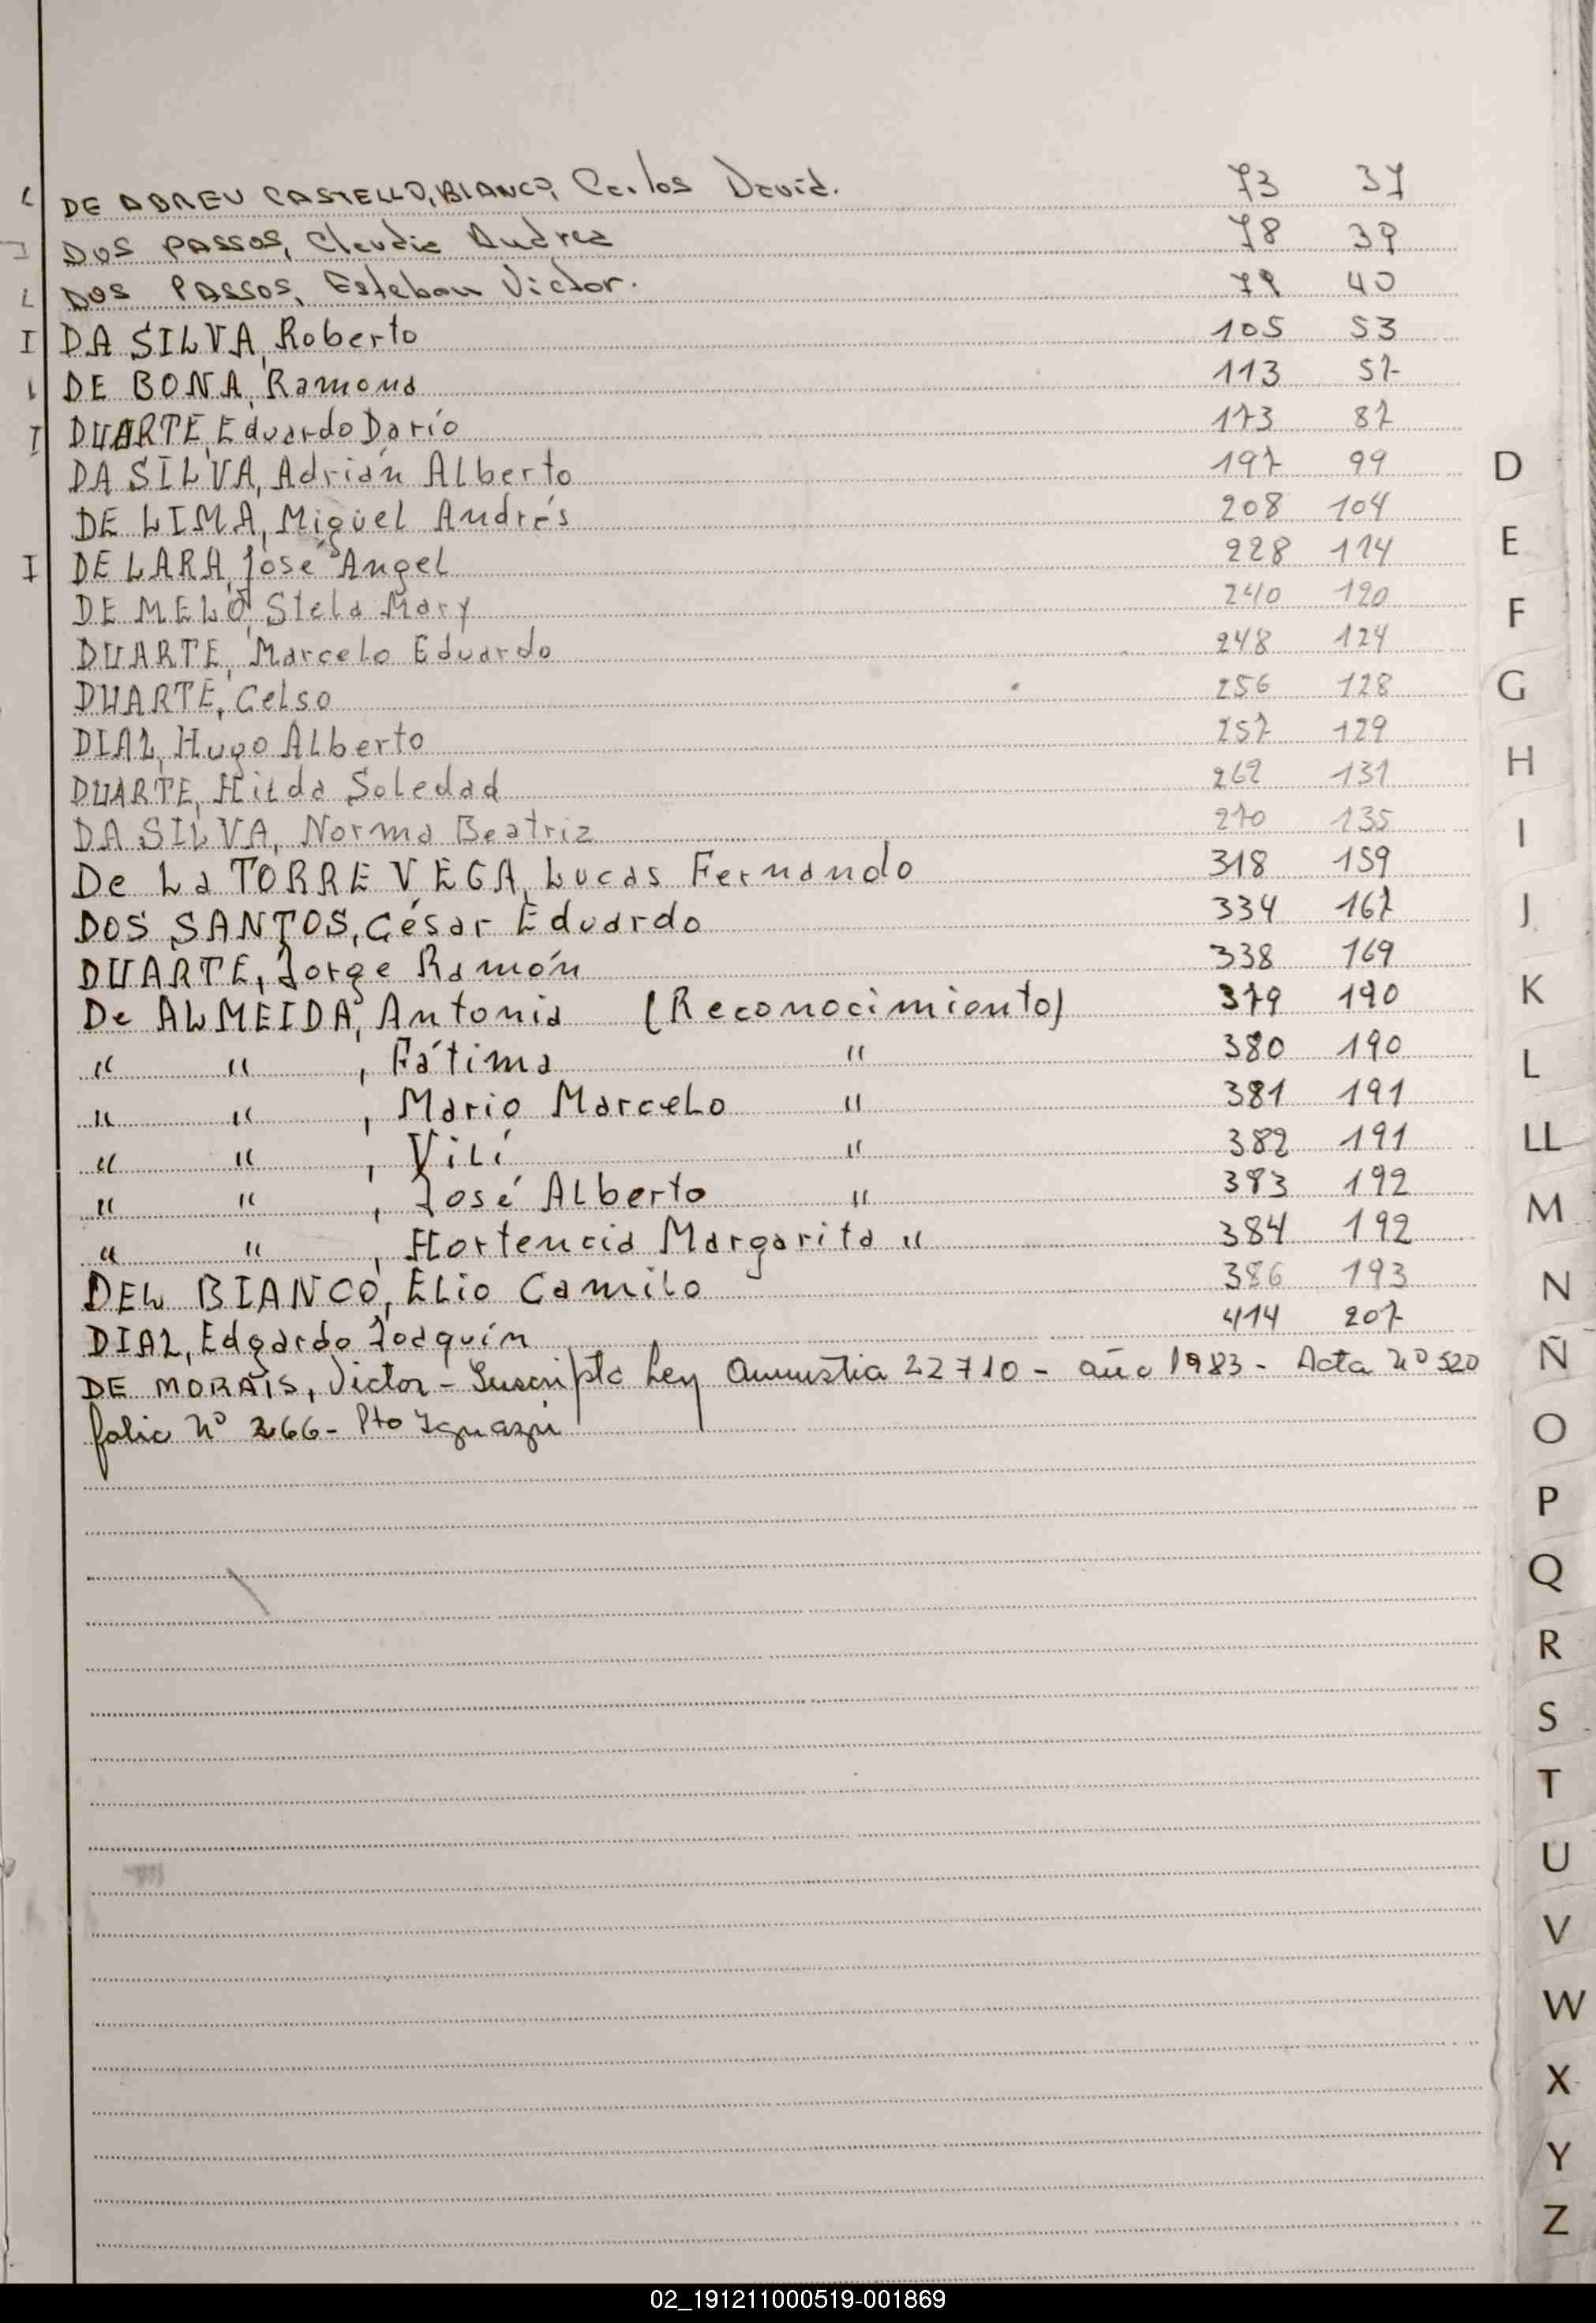 L DE ABREU CASTELLO, BIANCO, Carlos David. 73 37
I DOS PASSOS, Claudia Andrea 78 39
L DOS PASSOS, Esteban Victor. 79 40
I DA SILVA, Roberto 105 53
L DE BONA, Ramona 113 57
I DUARTE, Eduardo Darío 173 87
DA SILVA, Adrián Alberto 197 99
DE LIMA, Miguel Andrés 208 104
I DE LARA, José Angel 228 114
DE MELO, Stela Mary 240 120
DUARTE, Marcelo Eduardo 248 124
DUARTE, Celso 256 128
DIAZ, Hugo Alberto 257 129
DUARTE, Hilda Soledad 262 131
DA SILVA, Norma Beatriz 270 135
De La TORRE VEGA, Lucas Fernando 318 159
DOS SANTOS, César Eduardo 334 167
DUARTE, Jorge Ramón 338 169
De ALMEIDA, Antonia (Reconocimiento) 379 190
" " , Fátima " 380 190
" " , Mario Marcelo " 381 191
" " , Vilí " 382 191
" " , José Alberto " 383 192
" " , Hortencia Margarita " 384 192
DEL BIANCO, Elio Camilo 386 193
DIAZ, Edgardo Joaquín 414 207
DE MORAIS, Victor - Suscripto Ley Amnistia 22710 - año 1983 - Acta Nº 520
folio Nº 266 - Pto Iguazú
D
E
F
G
H
I
J
K
L
LL
M
N
Ñ
O
P
Q
R
S
T
U
V
W
X
Y
Z
02_191211000519-001869